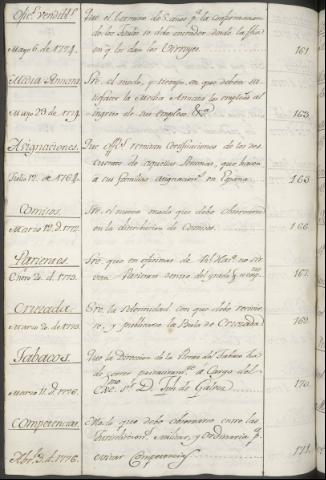 Ofic.s vendibl.s Que el termino de 5 años p.a la confirmacion
de los Titulos se debe entender desde la fha
Mayo 6. de 1774. en q.e los dan los Virreyes. 161.
Media Annata Sre. el modo, y tiempo en que deben sa-
tisfacer la Media Annata los empleados al
Mayo 23. de 1774. ingreso de sus empleos &.a 163.
Asignaciones. Que Ofic.s remitan Certificaciones de los des-
cuentos de aquellas Personas, que hacen
Julio 12. de 1764. a sus familias asignacion.s en España 165.
Comisos. Sre. el nuevo modo que debe observarse
Marzo 12. d. 1772. en la distribucion de Comisos. 166.
Parientes. Sre. que en oficinas de R.l Haz.a no sir-
Enro 2. d. 1773. van Parientes dentro del grado 167.
Cruzada. Sre. la solemnidad con que debe recivir-
Marzo 2. d. 1773. se, y publicarse la Bula de Cruzada 169.
Tabacos. Que la Direccion de la Renta del Tabaco ha
de correr privativam.te a Cargo del
Marzo 11. d. 1776. Exc.mo S.r D. de Galvez 170.
Competencias. Modo que debe observarse entre las
Jurisdiccion.s Militar, y Ordinaria p.a
Abr.l 3. d. 1776. evitar Competencias 171.